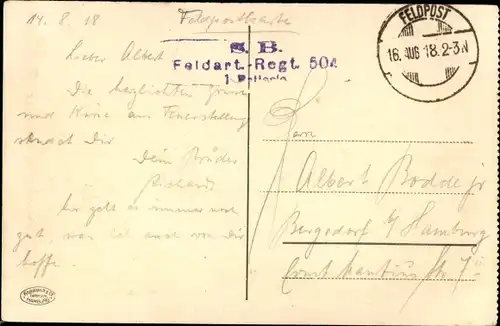 14. 8. 18
Feldpostkarte
S. B.
Feldart.-Regt. 504
1. Batterie
FELDPOST
16. AUG 18. 2-3 N
Lieber Albert
Die herzlichsten Grüße
und Küsse aus Feuerstellung
sendet Dir
Dein Bruder
Richard
hier geht es immer noch
gut, was ich auch von Dir
hoffe.
Herrn
Albert Bodde jr
Bergedorf b/ Hamburg
Ernst Mantius Str. 7